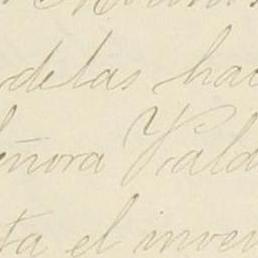 de las hac
eñora Vald
ta el inven